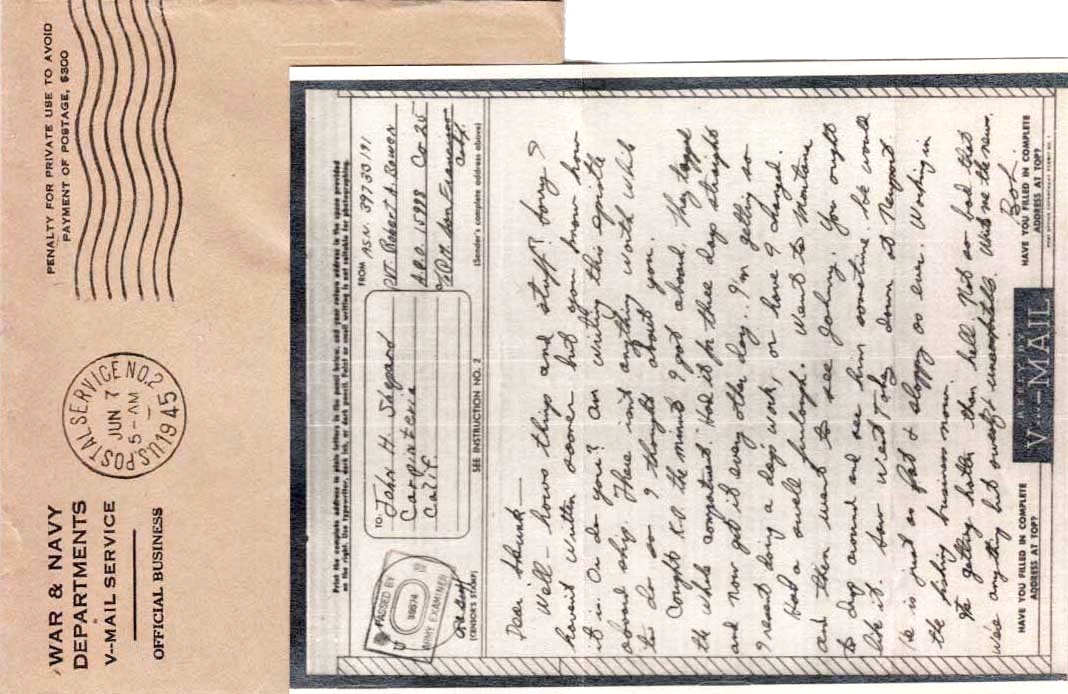 PENALTY FOR PRIVATE USE TO AVOID
PAYMENT OF POSTAGE, $300
U.S. POSTAL SERVICE NO. 2
JUN 7
5-AM
1945
WAR & NAVY
DEPARTMENTS
V--MAIL SERVICE
OFFICIAL BUSINESS
Print the complete address in plain letters in the panel below, and your return address in the space provided
on the right. Use typewriter, dark ink, or dark pencil. Faint or small writing is not suitable for photographing.
PASSED BY
U
08674
ARMY EXAMINER
(CENSOR'S STAMP)
TO:
John H. Shepard
Carpinteria
Calif.
SEE INSTRUCTION NO. 2
FROM ASN. 39730191
Pvt. Robert A.
A.P.O. 15998 Co 25
P.M. San Francisco
Calif.
(Sender's complete address above)
Dear
Well - hows things and stuff?
havent written sooner but you know how
it is. Or do you? An writing this epistle
aboard ship. There isnt anything worth while
to do so I thought about you.
Caught K.P. the minute I got aboard. They
the whole compartment. Had it for three days straight
and now get it every other day. I'm getting so
I resent doing a days work, or have I changed.
Had a small furlough. Went to Montana
and then went to see Johny. You ought
to drop around and see him sometime, he would
like it. Saw down at Newport.
He is just as fat & sloppy as ever. Working in
the fishing business now.
getting hotter than hell. Not so bad that
wear anything but Write me the news.
Bob.
HAVE YOU FILLED IN COMPLETE
ADDRESS AT TOP?
REPLY BY
V···-MAIL
HAVE YOU FILLED IN COMPLETE
ADDRESS AT TOP?